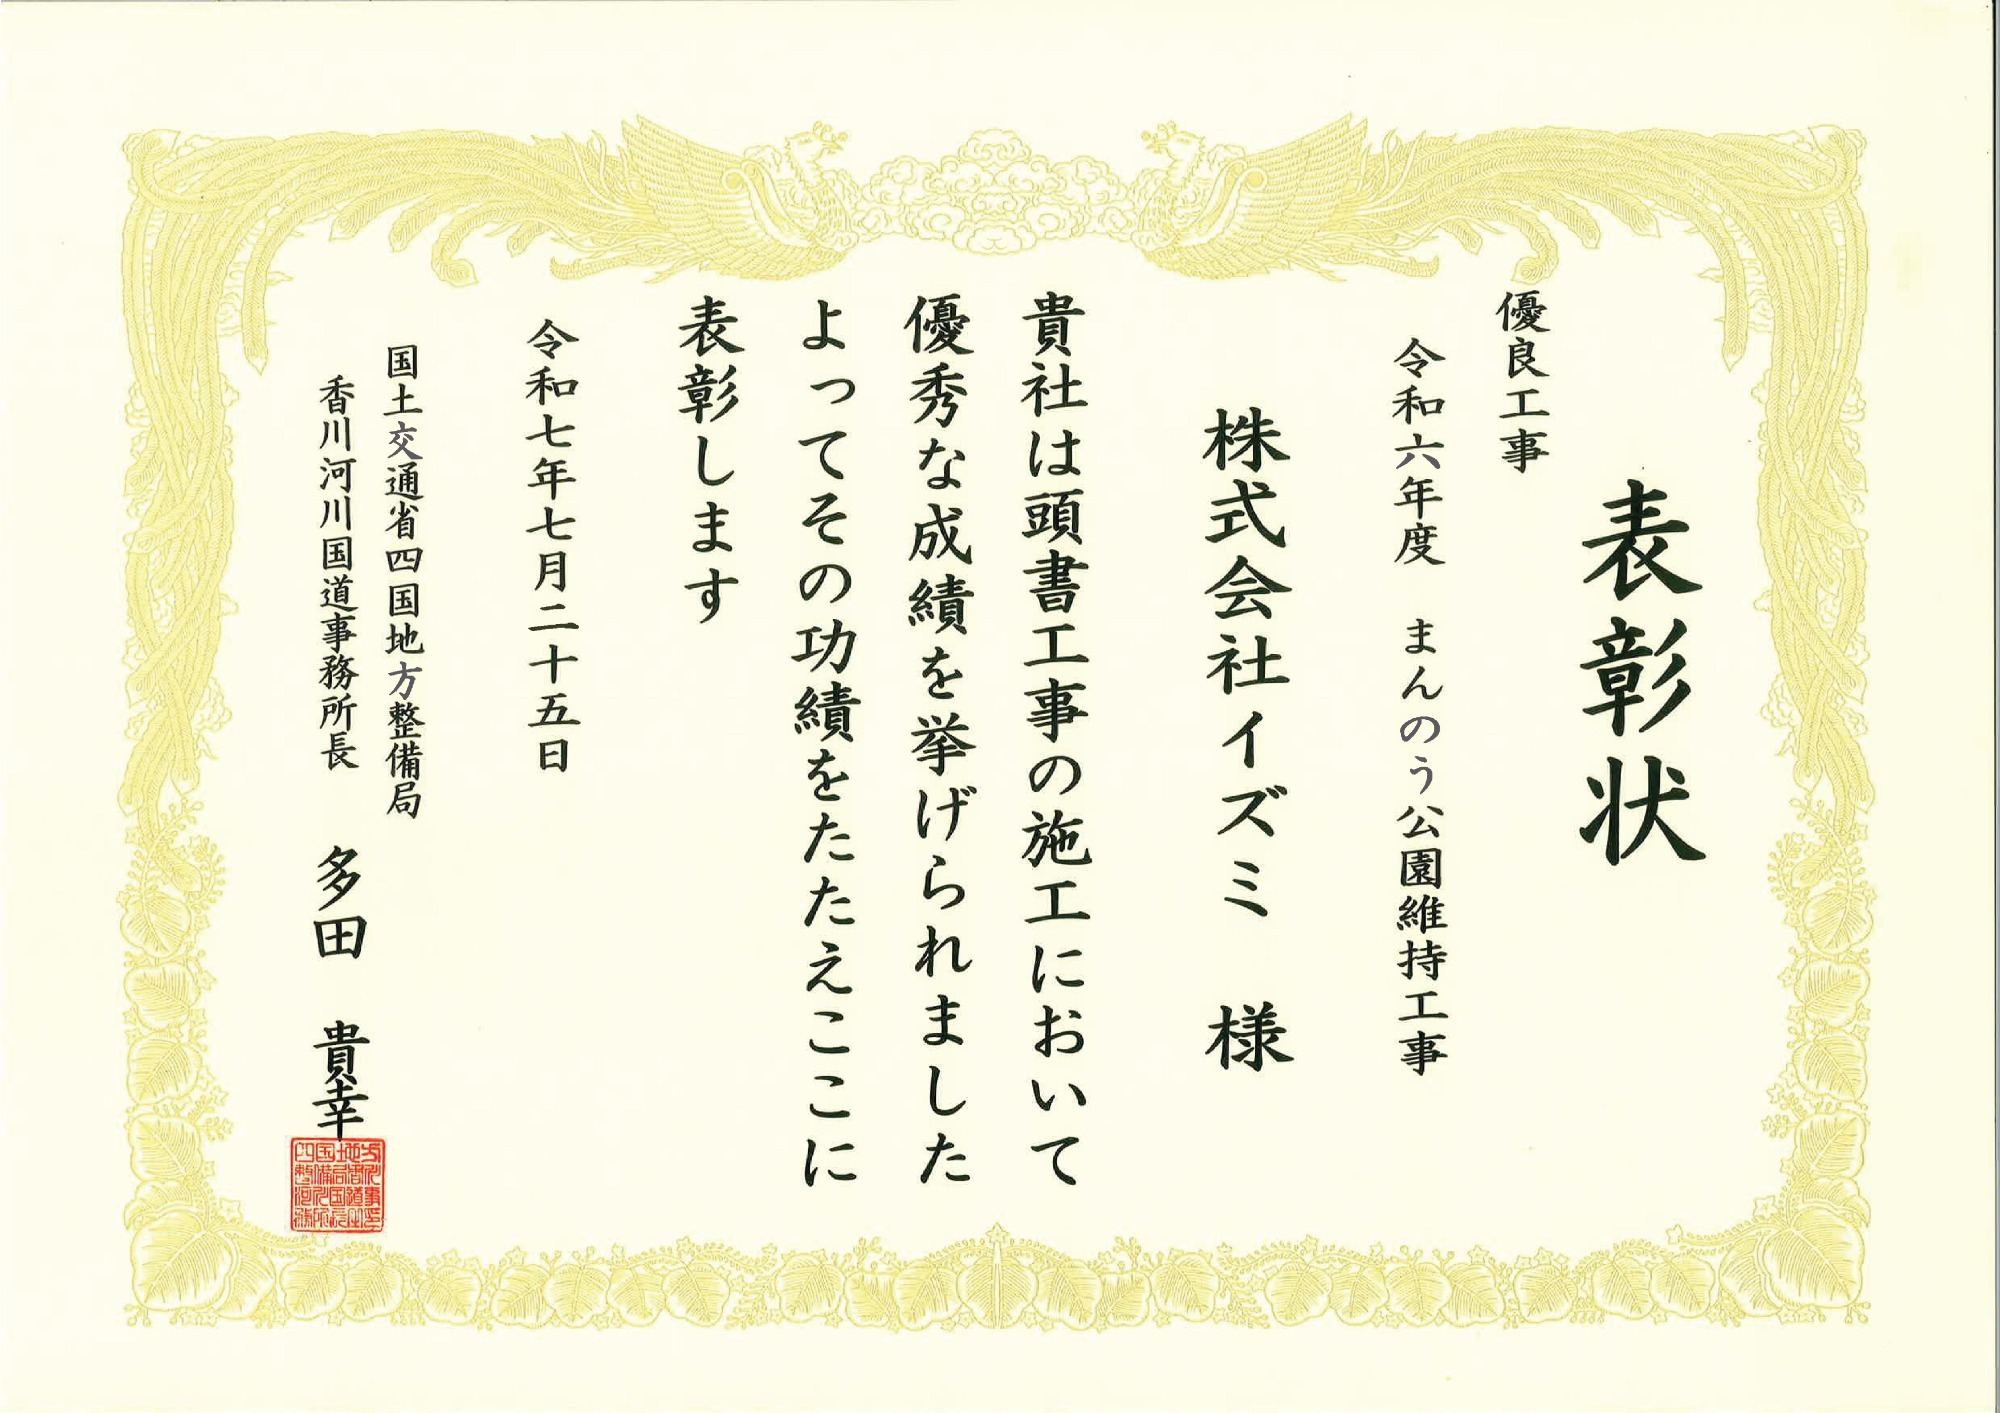 表彰状
優良工事
令和六年度　まんのう公園維持工事
株式会社イズミ　様
貴社は頭書工事の施工において
優秀な成績を挙げられました
よってその功績をたたえここに
表彰します
令和七年七月二十五日
国土交通省四国地方整備局
香川河川国道事務所長　多田　貴幸